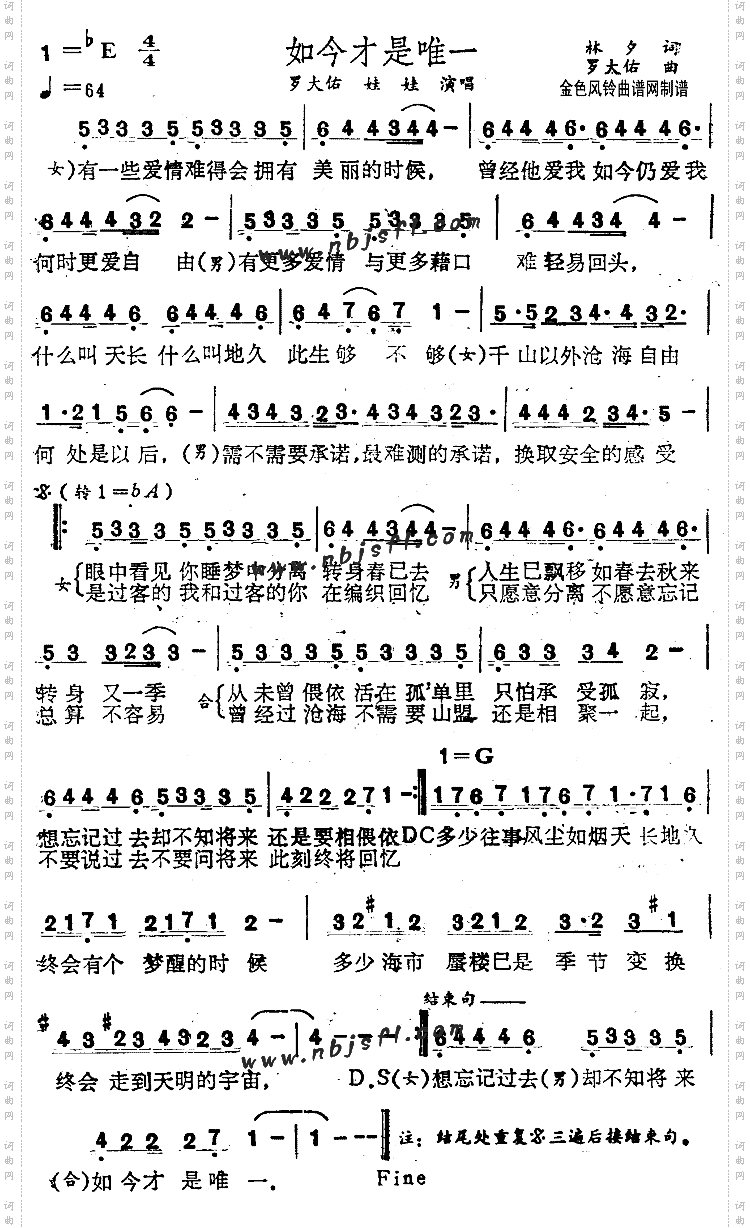 1=♭E 4/4 如今才是唯一 林夕 词
罗大佑 曲
♩=64 罗大佑 娃娃 演唱 金色风铃曲谱网制谱
5 3 3 3 5 5 3 3 3 5 | 6 4 4 3 4 4 - | 6 4 4 4 6· 6 4 4 4 6· |
女)有一些爱情难得会拥有 美丽的时候, 曾经他爱我如今仍爱我
6 4 4 4 3 2 2 - | 5 3 3 3 5 5 3 3 3 5 | 6 4 4 3 4 4 - |
何时更爱自 由(男)有更多爱情 与更多藉口 难轻易回头,
www.nbjsfl.com
6 4 4 4 6 6 4 4 4 6 | 6 4 7 6 7 1 - | 5·5 2 3 4· 4 3 2· |
什么叫天长 什么叫地久 此生够 不 够(女)千山以外沧海自由
1·2 1 5 6 6 - | 4 3 4 3 2 3· 4 3 4 3 2 3· | 4 4 4 2 3 4· 5 - |
何 处是以后, (男)需不需要承诺,最难测的承诺, 换取安全的感 受
𝄋(转1=bA)
‖: 5 3 3 3 5 5 3 3 3 5 | 6 4 4 3 4 4 - | 6 4 4 4 6· 6 4 4 4 6· |
www.nbjsfl.com
女{眼中看见 你睡梦中分离 转身春已去 男{人生已飘移 如春去秋来
是过客的 我和过客的你 在编织回忆 只愿意分离 不愿意忘记
5 3 3 2 3 3 - | 5 3 3 3 5 5 3 3 3 5 | 6 3 3 3 4 2 - |
转身 又一季 合{从未曾偎依 活在孤单里 只怕承 受孤 寂,
总算 不容易 曾经过沧海 不需要山盟 还是相 聚一 起,
1=G
6 4 4 4 6 5 3 3 3 5 | 4 2 2 2 7 1 - :‖ 1 7 6 7 1 7 6 7 1 7 1·7 1 6 |
想忘记过去却不知将来 还是要相偎依DC多少往事风尘如烟天长地久
不要说过去不要问将来 此刻终将回忆
2 1 7 1 2 1 7 1 2 - | 3 2 #1 2 3 2 1 2 3·2 3 #1 |
终会有个 梦醒的时 候 多少海市 蜃楼已是 季节变换
结束句——
#4 3 #2 3 4 3 2 3 4 - | 4 - - - ‖ 6 4 4 4 6 5 3 3 3 5 |
www.nbjsfl.com
终会 走到天明的宇宙, D.S(女)想忘记过去(男)却不知将来
4 2 2 2 7 1 - | 1 - - - ‖ 注: 结尾处重复𝄋三遍后接结束句。
(合)如今才 是唯 一. Fine
词曲网